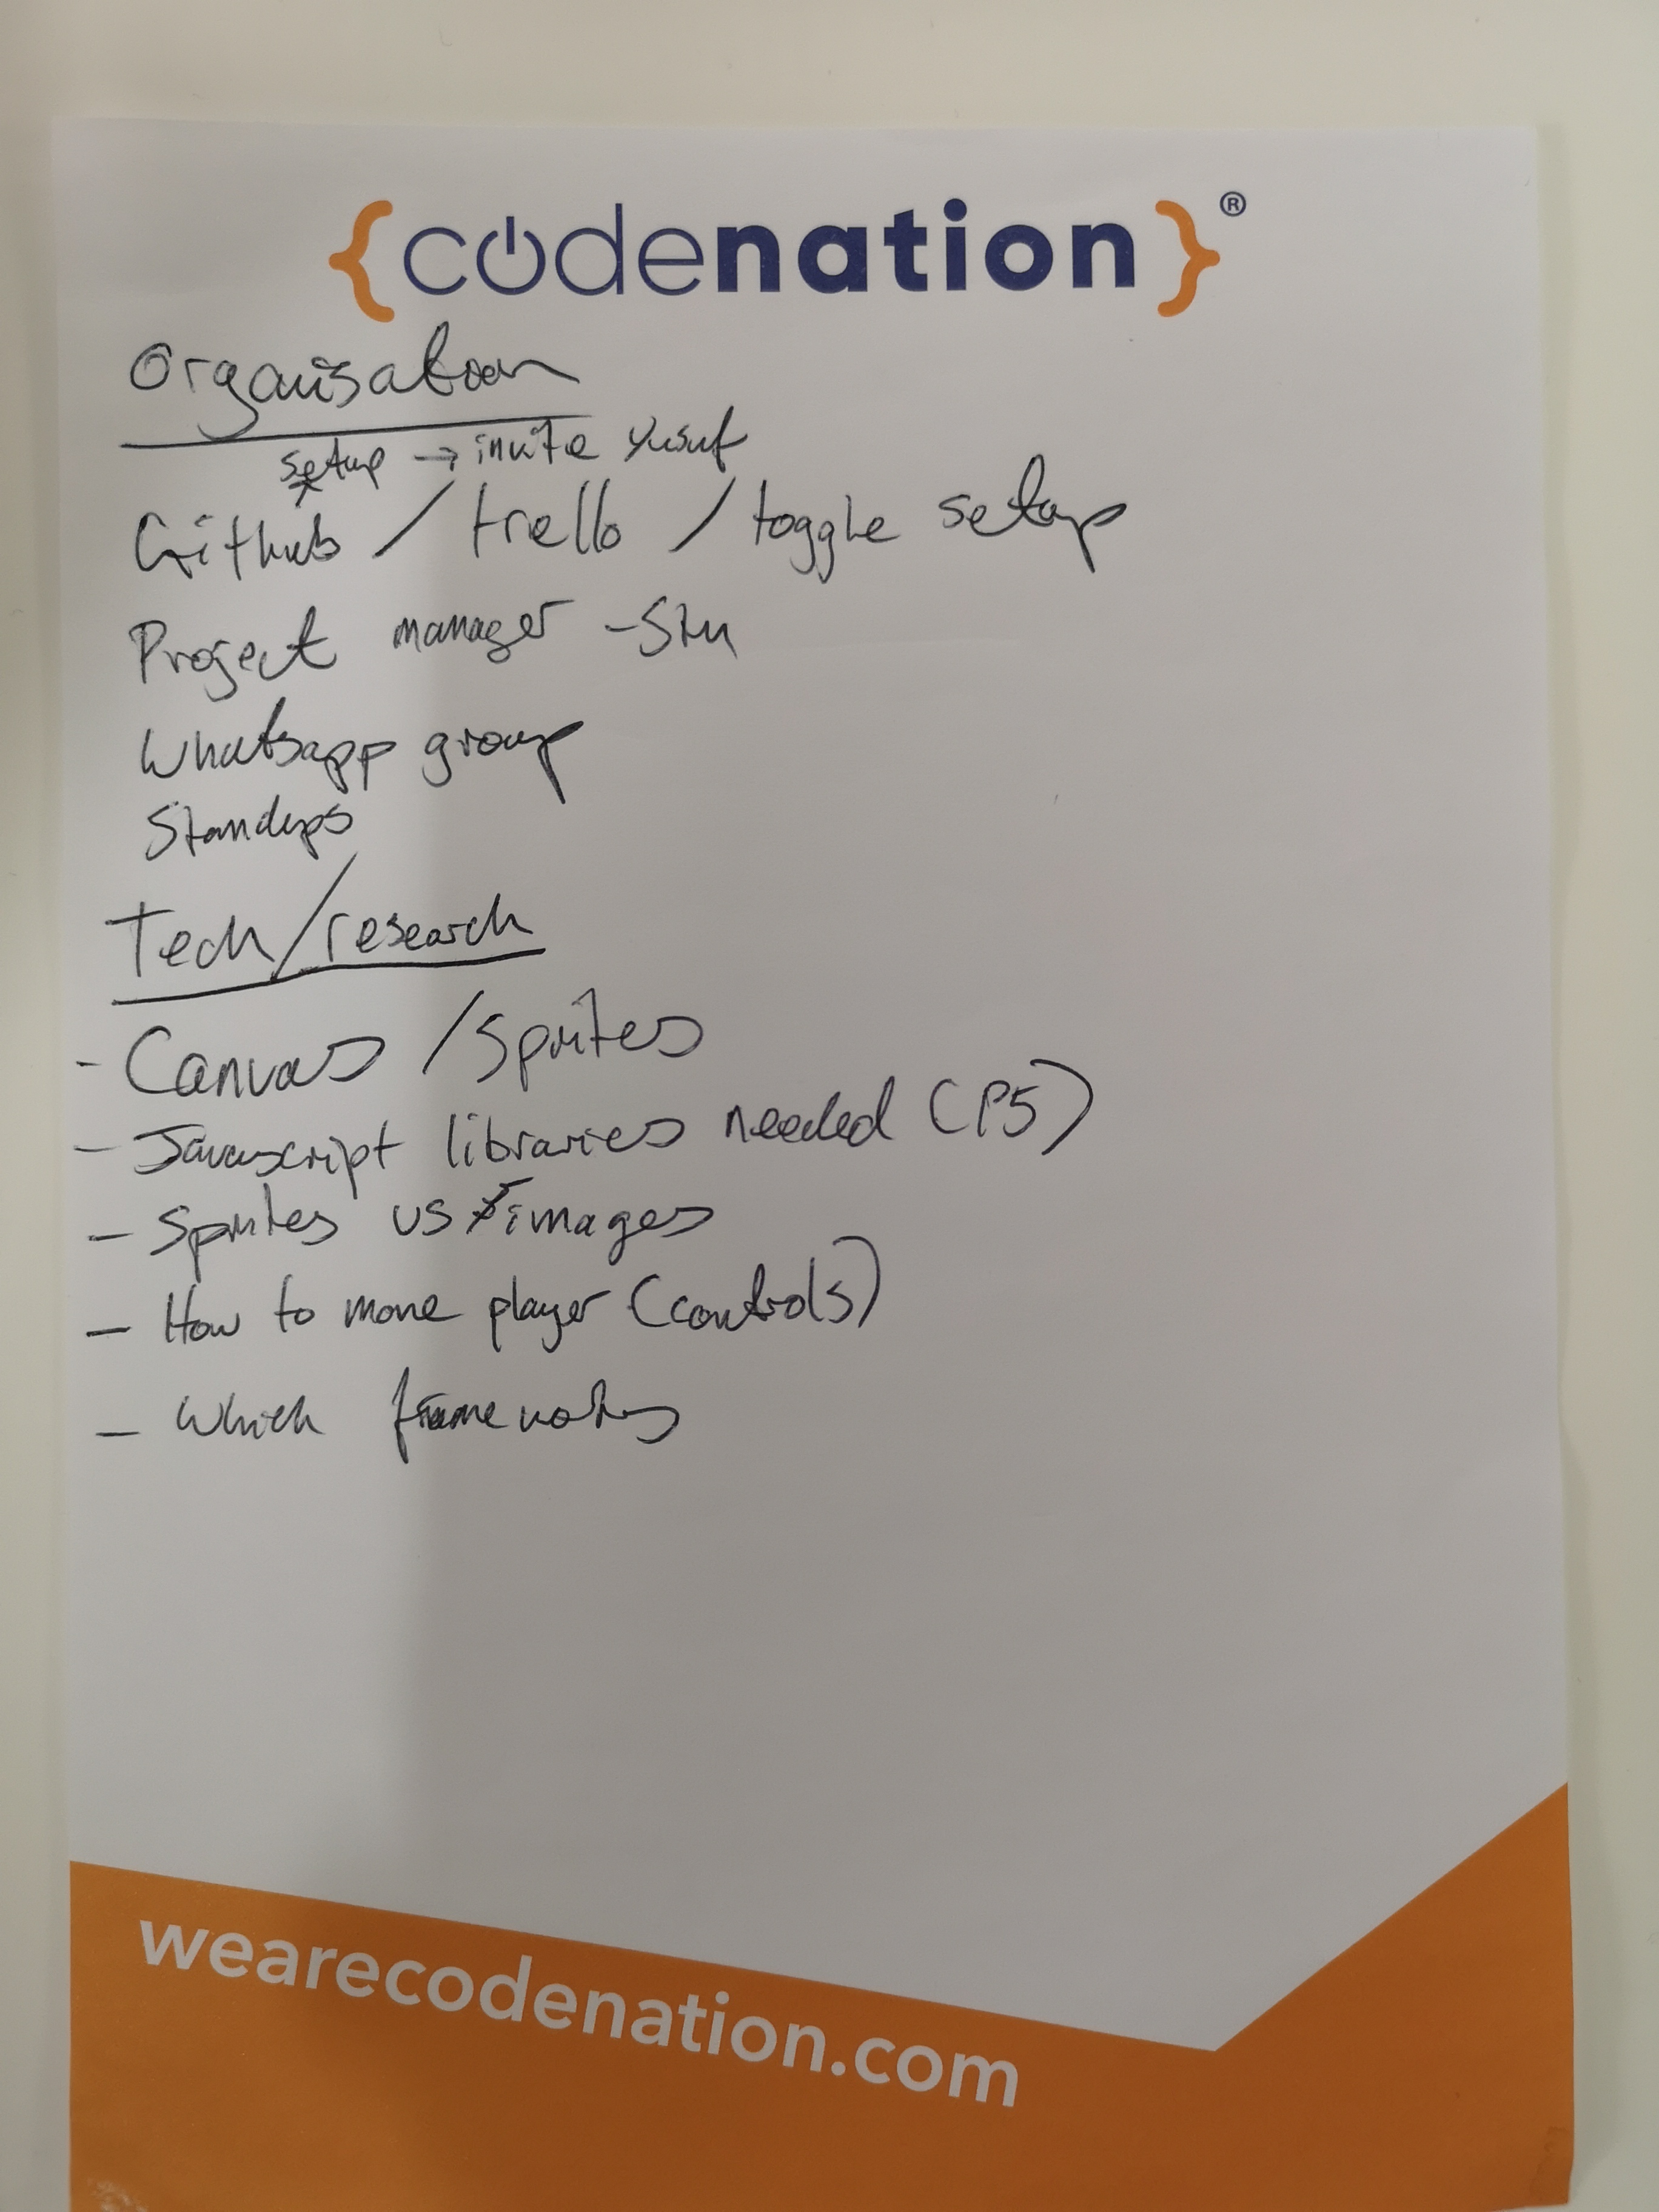 {codenation}®
Organisation
setup → invite Yusuf
Github / trello / toggle setup
Project manager - Stu
Whatsapp group
Standups
Tech/research
- Canvas / Sprites
- Javascript libraries needed (P5)
- Sprites vs images
- How to move player (controls)
- Which frameworks
wearecodenation.com